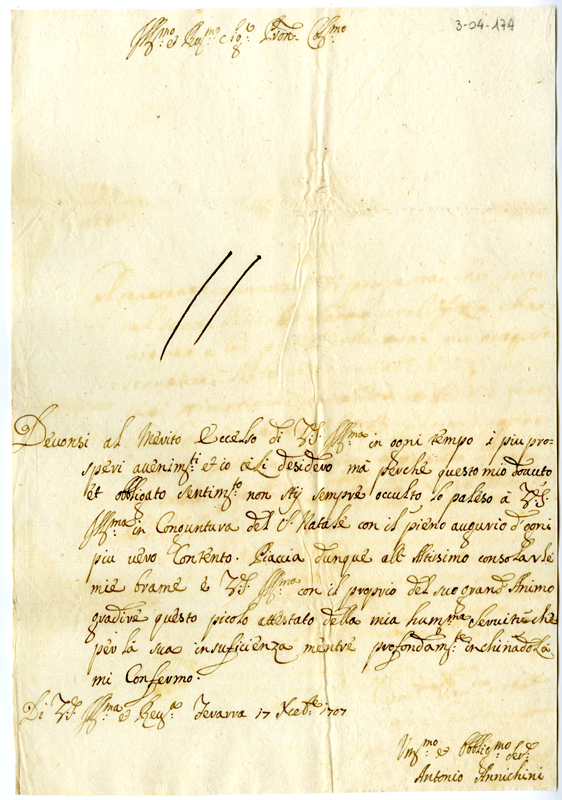 3-04-174
Ill.mo e Reu.mo Sig.r Pron. Col.mo
Deuonsi al Merito Eccelso di V.S. Ill.ma in ogni tempo i piu pro-
speri auenim.ti et io celi desidero ma perche questo mio douuto
et obligato sentim.to non stij sempre occulto lo paleso à V.S.
Ill.ma in Congiuntura del S. Natale con il pieno augurio d'ogni
piu vero Contento. Piaccia dunque all'Altissimo consolar le
mie brame e V.S. Ill.ma con il proprio del suo grand'Animo
gradire questo picolo attestato della mia hum.ma Seruitù che
per la sua insuficienza mentre profondam.te inchinádola
mi Confermo.
Di V.S. Ill.ma e Reu.ma 17 Xceb.e 1707
e Obblig.mo Ser.e
Antonio Annichini